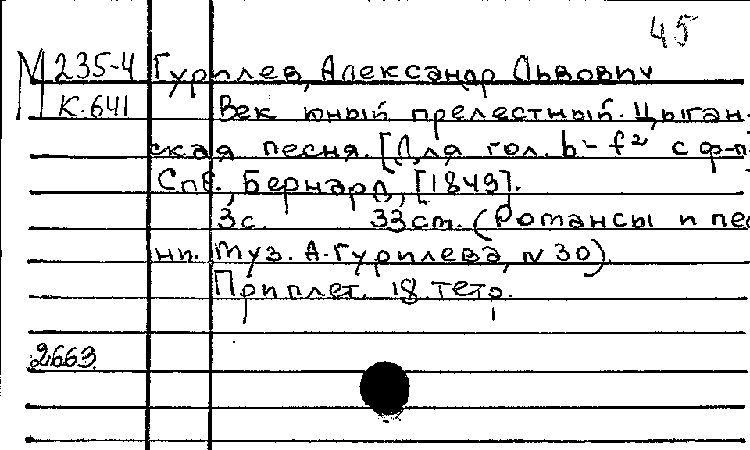 45
М 235-4 Гурилев, Александр Львович
К.641 Век юный прелестный. Цыган-
ская песня. [Для гол. b - f² с ф-п]
Спб., Бернард, [1849].
3с. 33см. (Романсы и пес
ни. Муз. А. Гурилева, N 30).
Приплет. 18 тетр.
2663